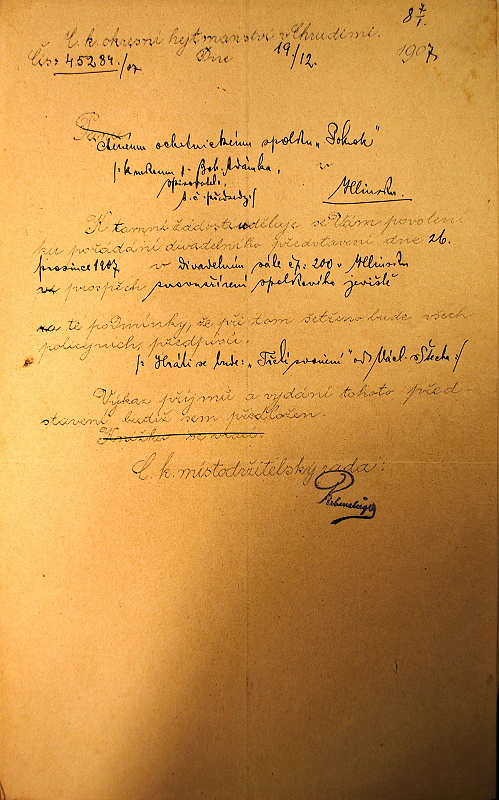 8 7/1.
C. k. okresní hejtmanství v Chrudimi.
Čís. 45284./07 Dne 19./12. 1907
Panu
Ctěnému ochotnickému spolku „Pokrok"
/: k rukoum p. Boh. Adámka,
spisovatele, v
t. č. předsedy :/ Hlinsku.
K tamní žádosti uděluje se Vám povolení
ku pořádání divadelního představení dne 26.
prosince 1907 v divadelním sále čp. 200 v Hlinsku
ve prospěch spolkového jeviště
na té podmínky, že při tom šetřeno bude všech
policejních předpisů.
/: Hráti se bude: „Třetí zvonění" od Václ. Štecha :/
Výkaz příjmů a vydání tohoto před-
stavení budiž sem předložen.
se vrací.
C. k. místodržitelský rada: